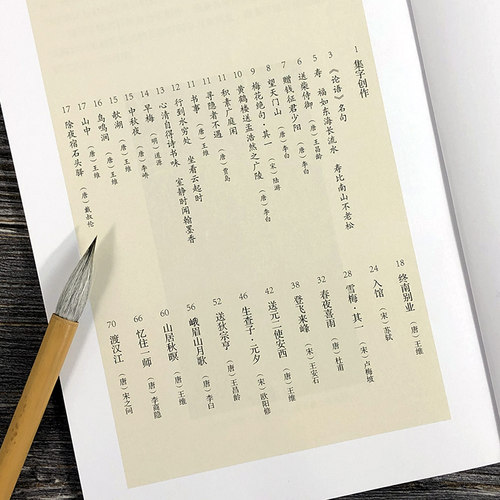 1 集字创作
3 《论语》名句
5 寿 福如东海长流水 寿比南山不老松
6 送柴侍御 (唐)王昌龄
7 赠钱征君少阳 (唐)李白
8 望天门山 (唐)李白
9 梅花绝句·其一 (宋)陆游
10 黄鹤楼送孟浩然之广陵 (唐)李白
11 积素广庭闲
11 寻隐者不遇 (唐)贾岛
11 书事 (唐)王维
12 行到水穷处 坐看云起时
13 心清自得诗书味 室静时闻翰墨香
14 早梅 (明)道源
15 中秋夜 (唐)李峤
15 欹湖 (唐)王维
16 鸟鸣涧 (唐)王维
17 山中 (唐)王维
17 除夜宿石头驿 (唐)戴叔伦
18 终南别业 (唐)王维
24 入馆 (宋)苏轼
28 雪梅 其一 (宋)卢梅坡
32 春夜喜雨 (唐)杜甫
38 登飞来峰 (宋)王安石
42 送元二使安西 (唐)王维
46 生查子·元夕 (宋)欧阳修
52 送狄宗亨 (唐)王昌龄
56 峨眉山月歌 (唐)李白
60 山居秋暝 (唐)王维
66 忆住一师 (唐)李商隐
70 渡汉江 (唐)宋之问